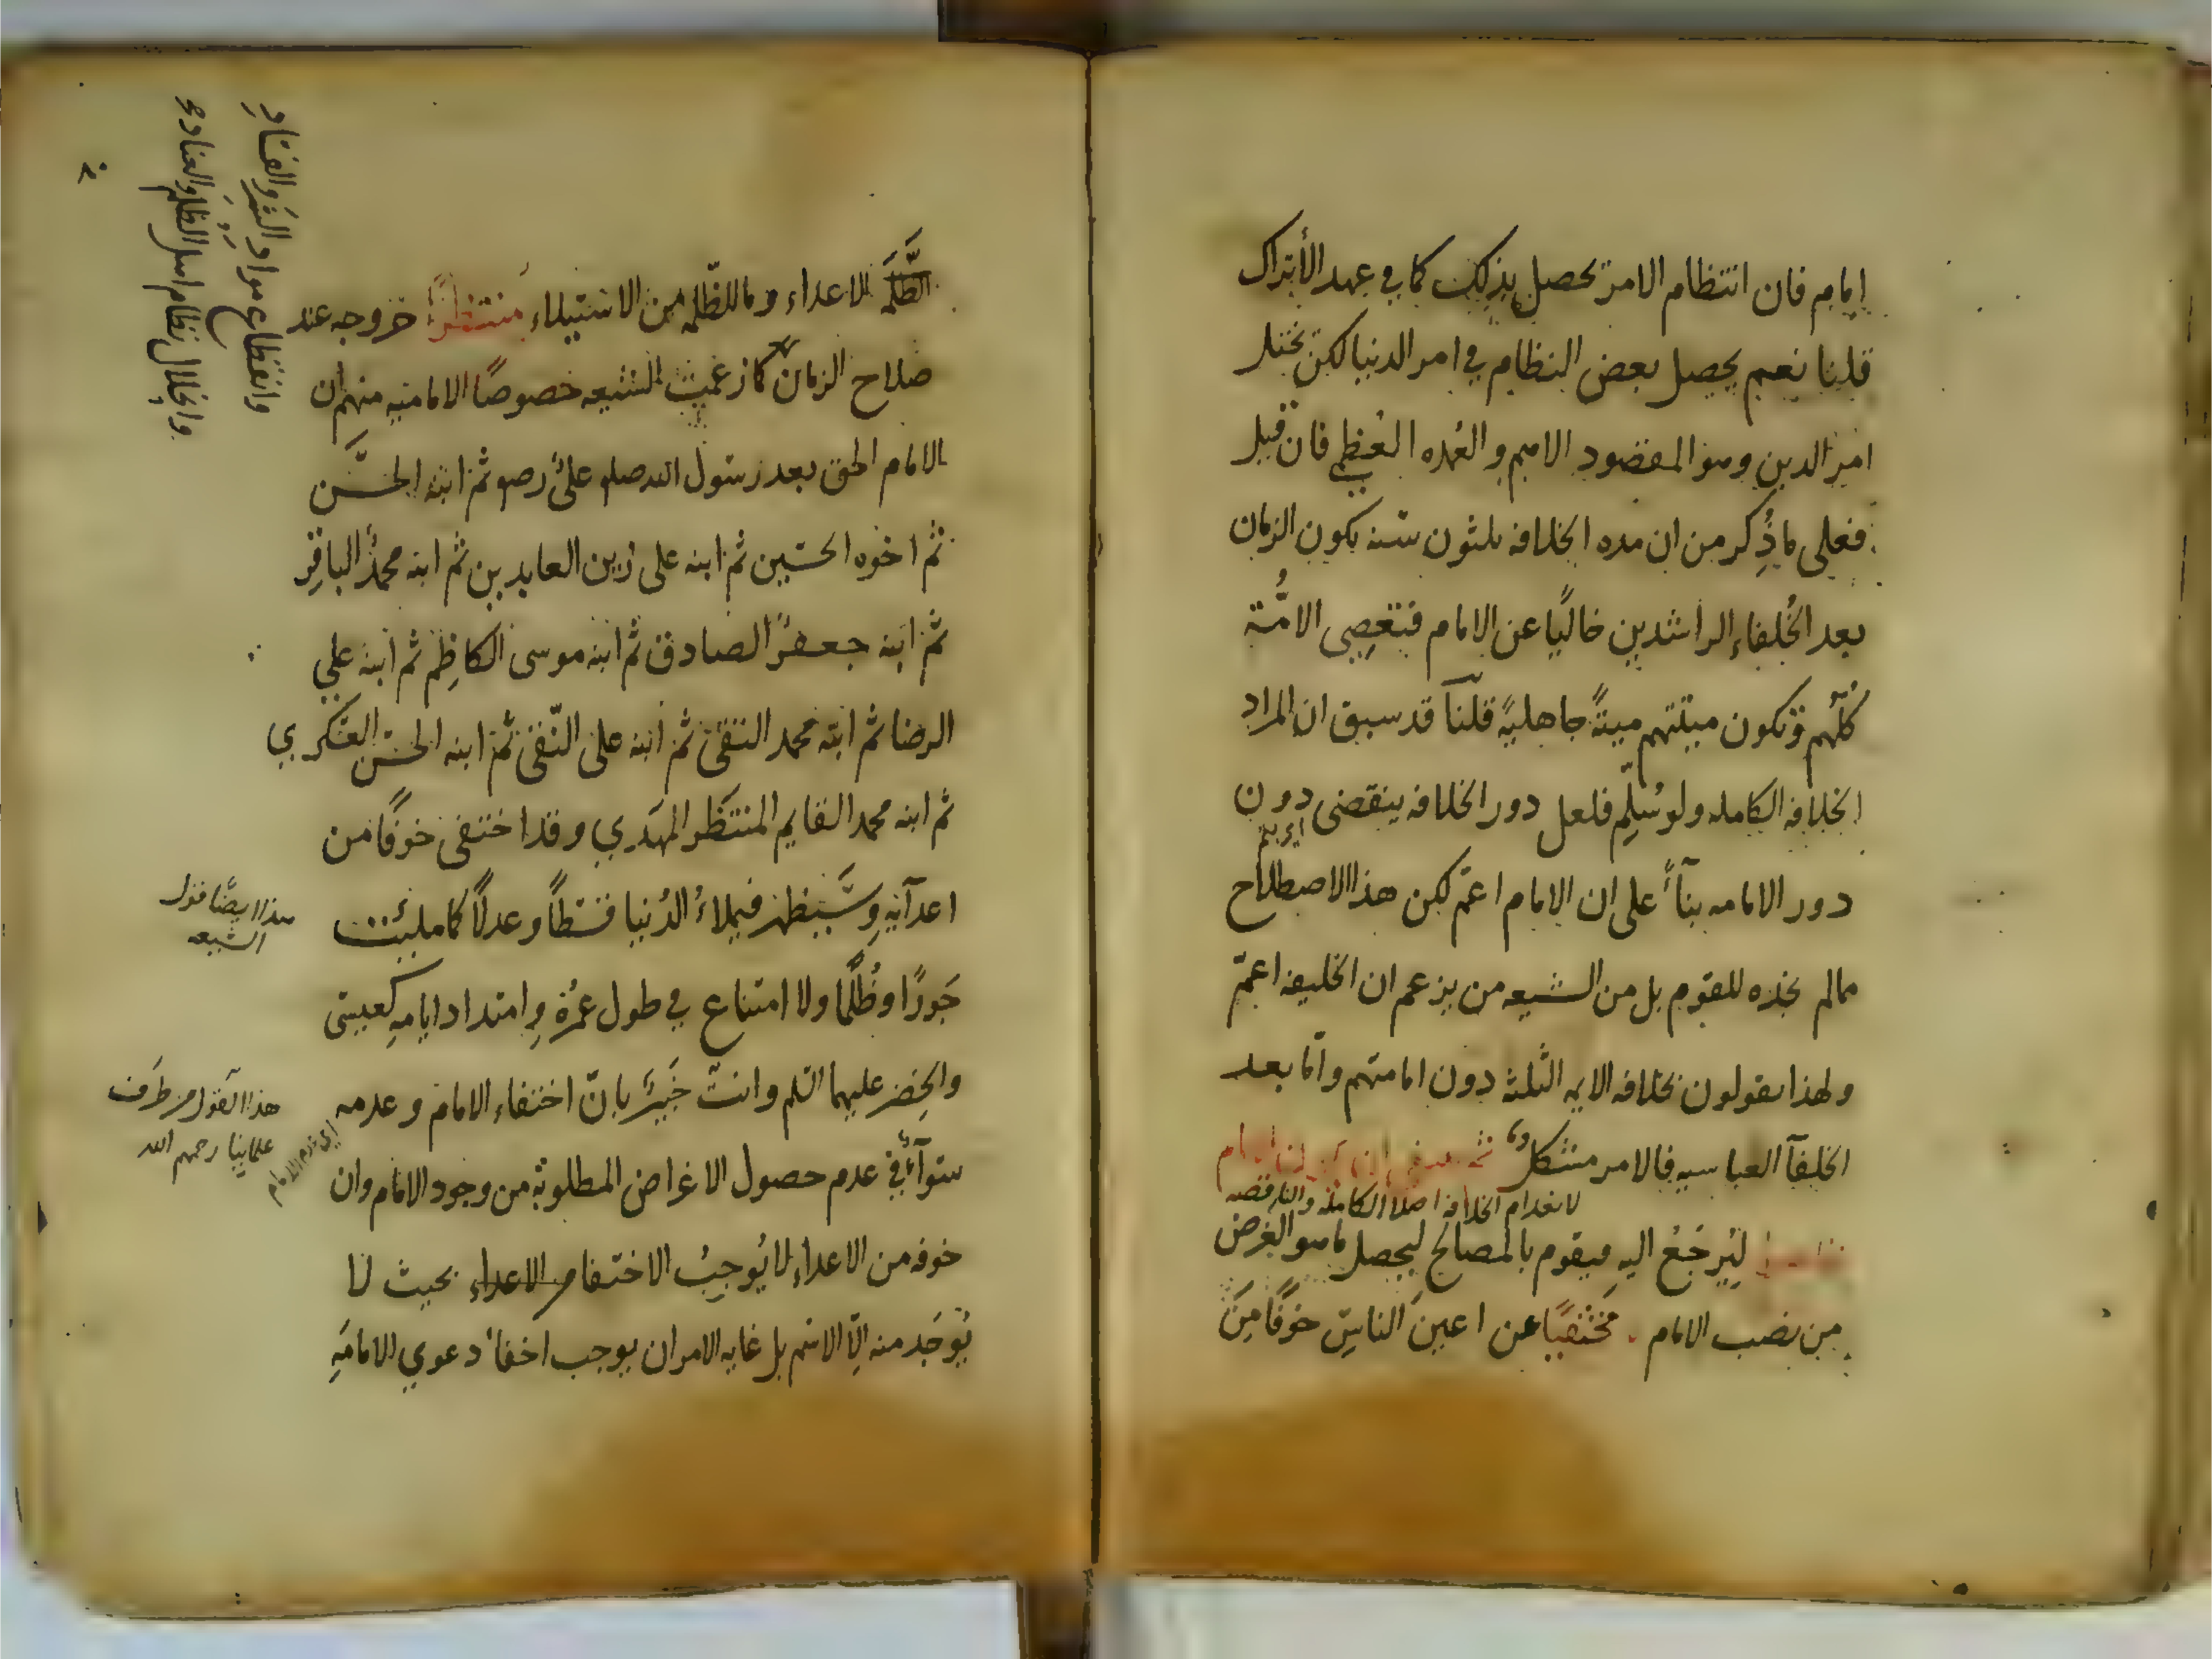 امام فان انتظام الامر يحصل بذلك كما في عهد الأتراك
قلنا نعم يحصل بعض النظام في امر الدنيا لكن يختل
امر الدين وهو المقصود الاهم والعُمده العُظمى فان قيل
فعلى ما ذُكر من ان مده الخلافه ثلثون سنة يكون الزمان
بعد الخُلفاء الراشدين خاليًا عن الامام فتعصِى الامُّة
كلُّهم وتكون ميتتهم ميتةً جاهليةً قلنا قد سبق ان المراد
الخلافه الكامله ولو سُلِّم فلعل دور الخلافه ينقضى دون
دور الامامه بناءً على ان الامام اعمّ لكن هذا الاصطلاح
ممالم نجده للقوم بل من الشيعه من يزعم ان الخليفه اعمّ
ولهذا يقولون بخلافه الايمه الثلثه دون امامتهم وامّا بعد
الخلفآ العباسيه فالامر مشكلٌ ثم ينبغى ان يكون الامام
لانعدام الخلافه اصلا الكامله والناقصه
ظاهرا ليُرجَعُ اليهِ فيقوم بالمصالح ليحصل ما هو الغرض
من نصب الامام . مختفيًا عن اعين الناسِ خوفًا مِنَ
الظَّلَمَه
الاعداء وما للظّلمه من الاستيلاء منتظرًا خروجه عند
صلاح الزمان كما زعمت الشيعه خصوصًا الاماميه منهم ان
الامام الحق بعد رسول الله صلعم علىٌّ رضو ثم ابنه الحسَن
ثم اخوه الحسين ثم ابنه على زين العابدين ثم ابنه محمدٌ الباقِر
ثم ابنه جعفرٌ الصادق ثم ابنه موسى الكاظِم ثم ابنه علي
الرضا ثم ابنه محمد التقى ثم ابنه على النّقى ثم ابنه الحسن العسكري
ثم ابنه محمد القايم المنتَظَر المهَدي وقد اختفى خوفًا من
اعدآئِهِ وسَيظهر فيملاءُ الدُنيا قسطًا وعدلًا كما مليئت
جَورًا وظُلمًا ولا امتناع في طول عمُرهِ وامتداد ايامهِ كعيسى
والخِضر عليهما السلم وانت خَبيرٌ بانّ اختفاء الامام وعدمه
سوآءٌ في عدم حصول الاغراض المطلوبة من وجود الامام وان
خوفه من الاعداء لا يُوجِبُ الاختفا من الاعداء بحيث لا
يُوجَد منه الّا الاسم بل غايه الامر ان يوجب اخفاءُ دعوي الامامَهِ
وانقطاع مواد الشر والفساد
وانحلال نظام اهل الظلم والعناد
هذا ايضًا قول
الشيعه
هذا القول من طرف
علماينا رحمهم الله
اى عدم الامام